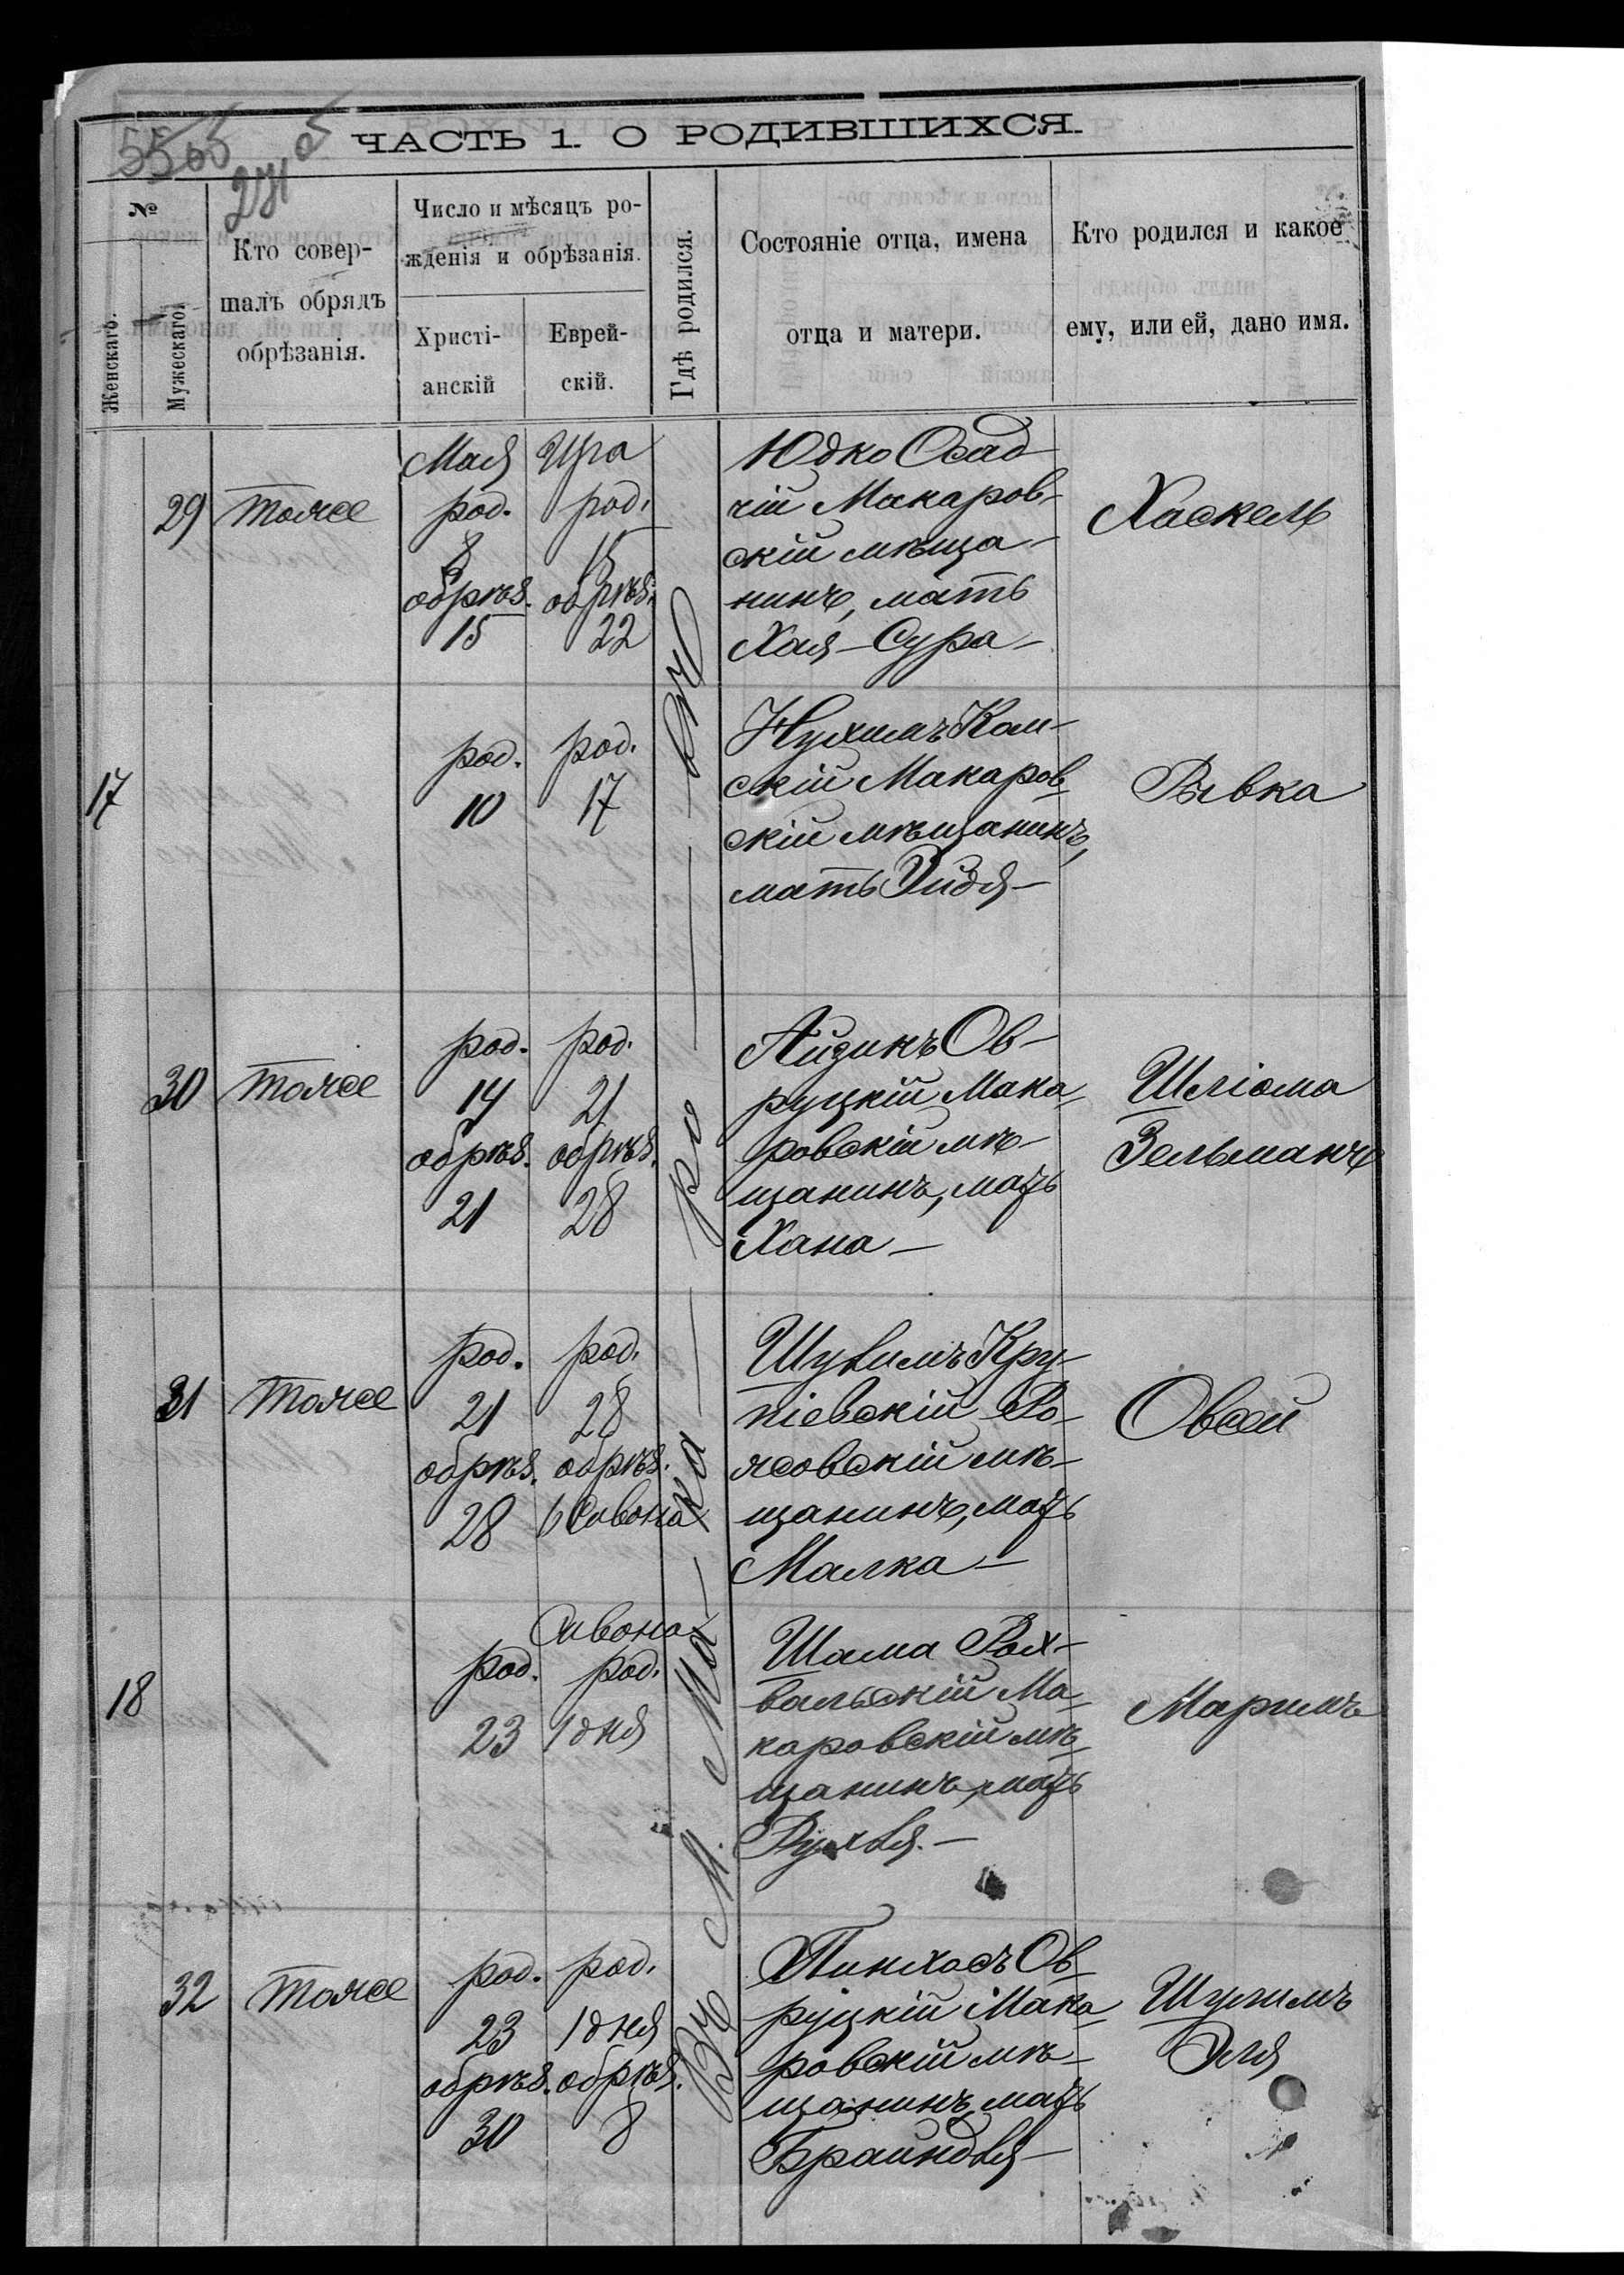 55об
271 об
ЧАСТЬ 1. О РОДИВШИХСЯ.
№
Женскаго.
Мужескаго.
Кто совер-
шалъ обрядъ
обрѣзанія.
Число и мѣсяцъ ро-
жденія и обрѣзанія.
Христі-
анскій
Еврей-
скій.
Гдѣ родился.
Состояніе отца, имена
отца и матери.
Кто родился и какое
ему, или ей, дано имя.
Въ М. Ма-ка-ро-вѣ
29
тоже
Мая
род.
8
обрѣз.
15
Ира
род.
15
обрѣз.
22
Юдко Осад-
чій Макаров-
скій мѣща-
нинъ, мать
Хая-Сура-
Хаскель
17
род.
10
род.
17
Нухимъ Кам-
скій Макаров-
скій мѣщанинъ,
мать Эйдя-
Рывка
30
тоже
род.
14
обрѣз.
21
род.
21
обрѣз.
28
Айзикъ Ов-
руцкій Мака-
ровскій мѣ-
щанинъ, мать
Хана-
Шліома
Зельманъ
31
тоже
род.
21
обрѣз.
28
род.
28
обрѣз.
6 Сивона
Шулимъ Кру-
піевскій Ро-
жовскій мѣ-
щанинъ, мать
Малка-
Овсей
18
род.
23
Сивона
род.
1 дня
Шама Рох-
вальскій Ма-
каровскій мѣ-
щанинъ, мать
Рухля.-
Маримъ
32
тоже
род.
23
обрѣз.
30
род.
1 дня
обрѣз.
8
Пинхосъ Ов-
руцкій Мака-
ровскій мѣ-
щанинъ, мать
Брайндля-
Шулимъ
Эля